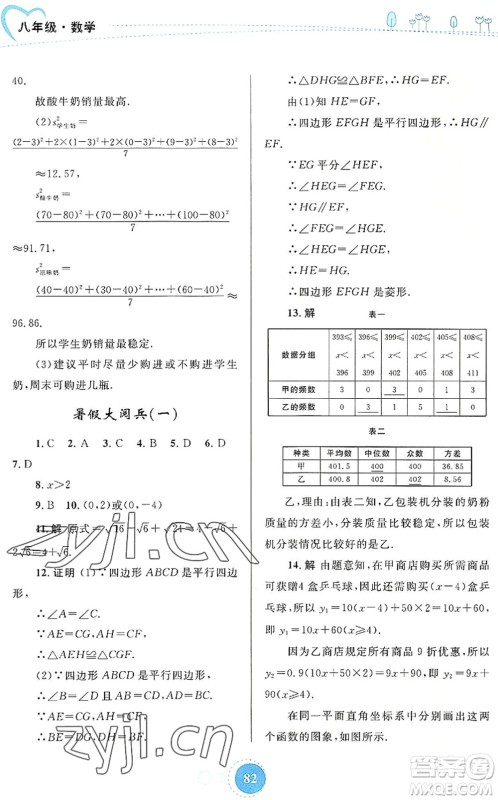 八年级·数学
40.
故酸牛奶销量最高.
(2)s²学生奶=
(2-3)²+2×(1-3)²+2×(2-3)²+(9-3)²+(8-3)²
7
≈12.57,
s²酸牛奶=
(70-80)²+(70-80)²+…+(100-80)²
7
≈91.71,
s²原味奶=
(40-40)²+(30-40)²+…+(60-40)²
7
≈
96.86.
所以学生奶销量最稳定.
(3)建议平时尽量少购进或不购进学生
奶,周末可购进几瓶.
暑假大阅兵(一)
1.C 2.A 3.C 4.B 5.D 6.D
7.D
8.x>2
9.B 10.(0,2)或(0,-4)
11.解 原式=√6+√6+√21÷√21=
2√6÷4√6.
12.证明(1)∵四边形ABCD是平行四边
形,
∴∠A=∠C.
∵AE=CG,AH=CF,
∴△AEH≌△CGF.
(2)∵四边形ABCD是平行四边形,
∴∠D=∠B,AD=BC,AB=CD.
∵AE=CG,AH=CF,
∴EB=DG,HD=BF.
∴△DHG≌△BFE,∴HG=EF.
由(1)知HE=GF,
∴四边形EFGH是平行四边形,∴HG∥
EF.
∵EG平分∠HEF,
∴∠HEG=∠FEG.
∵HG∥EF,
∴∠HGE=∠FEG,
∴∠HGE=∠HEG,
∴HE=HG,
∴四边形EFGH是菱形.
13.解 表一
数据分组 393≤x<396 396≤x<399 399≤x<402 402≤x<405 405≤x<408 408≤x<411
甲的频数 3 0 3 1 0 3
乙的频数 0 3 1 5 1 0
表二
种类 平均数 中位数 众数 方差
甲 401.5 400 400 36.85
乙 400.8 402 402 8.56
乙,理由是:由表二知,乙包装机分装的奶粉
质量的方差小,分装质量比较稳定,所以包装
机分装情况比较好的是乙.
14.解 由题意知,在甲商店购买所需商品
可获赠4盒乒乓球,只需购买(x-4)盒乒乓
球,所以y₁=10(x-4)+50×2=10x+60,
即y₁=10x+60(x≥4).
因为乙商店规定所有商品9折优惠,所以
y₂=0.9(10x+50×2)=9x+90,即y₂=9x+
90(x≥4).
在同一平面直角坐标系中分别画出这两
个函数的图象,如图所示.
zyjl.cn
zyjl.cn
82
答案圈
MXQE.COM